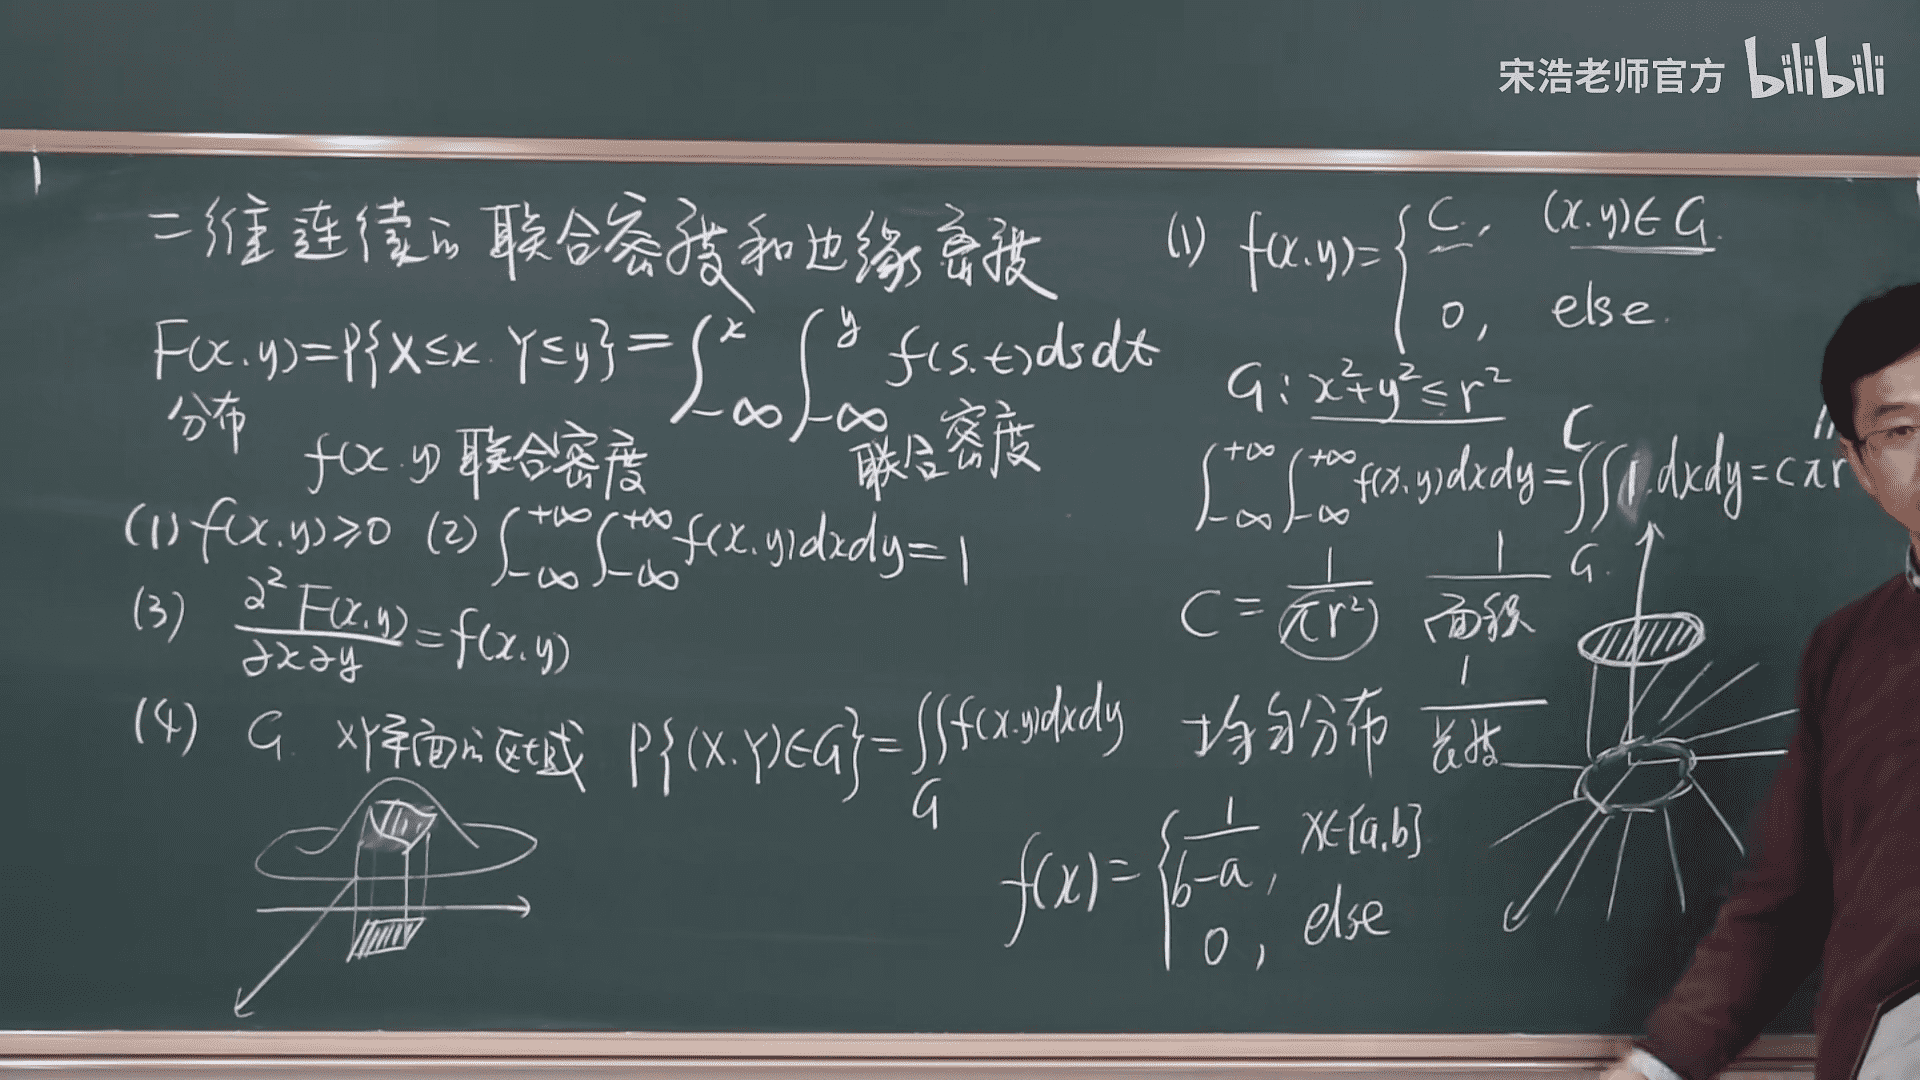 宋浩老师官方 bilibili
二维连续的联合密度和边缘密度
F(x,y)=P{X≤x, Y≤y}=∫_{-∞}^{x}∫_{-∞}^{y} f(s,t)dsdt
分布
联合密度
f(x,y) 联合密度
(1) f(x,y)≥0 (2) ∫_{-∞}^{+∞}∫_{-∞}^{+∞} f(x,y)dxdy=1
(3) ∂²F(x,y)/∂x∂y=f(x,y)
(4) G XY平面的区域 P{(X,Y)∈G}=∬_G f(x,y)dxdy
(1) f(x,y)={ C, (x,y)∈G
0, else.
G: x²+y²≤r²
∫_{-∞}^{+∞}∫_{-∞}^{+∞} f(x,y)dxdy=C∬_G 1·dxdy=cπr
C=1/(πr²) 1/面积
均匀分布 1/长度
f(x)={ 1/(b-a), x∈[a,b]
0, else